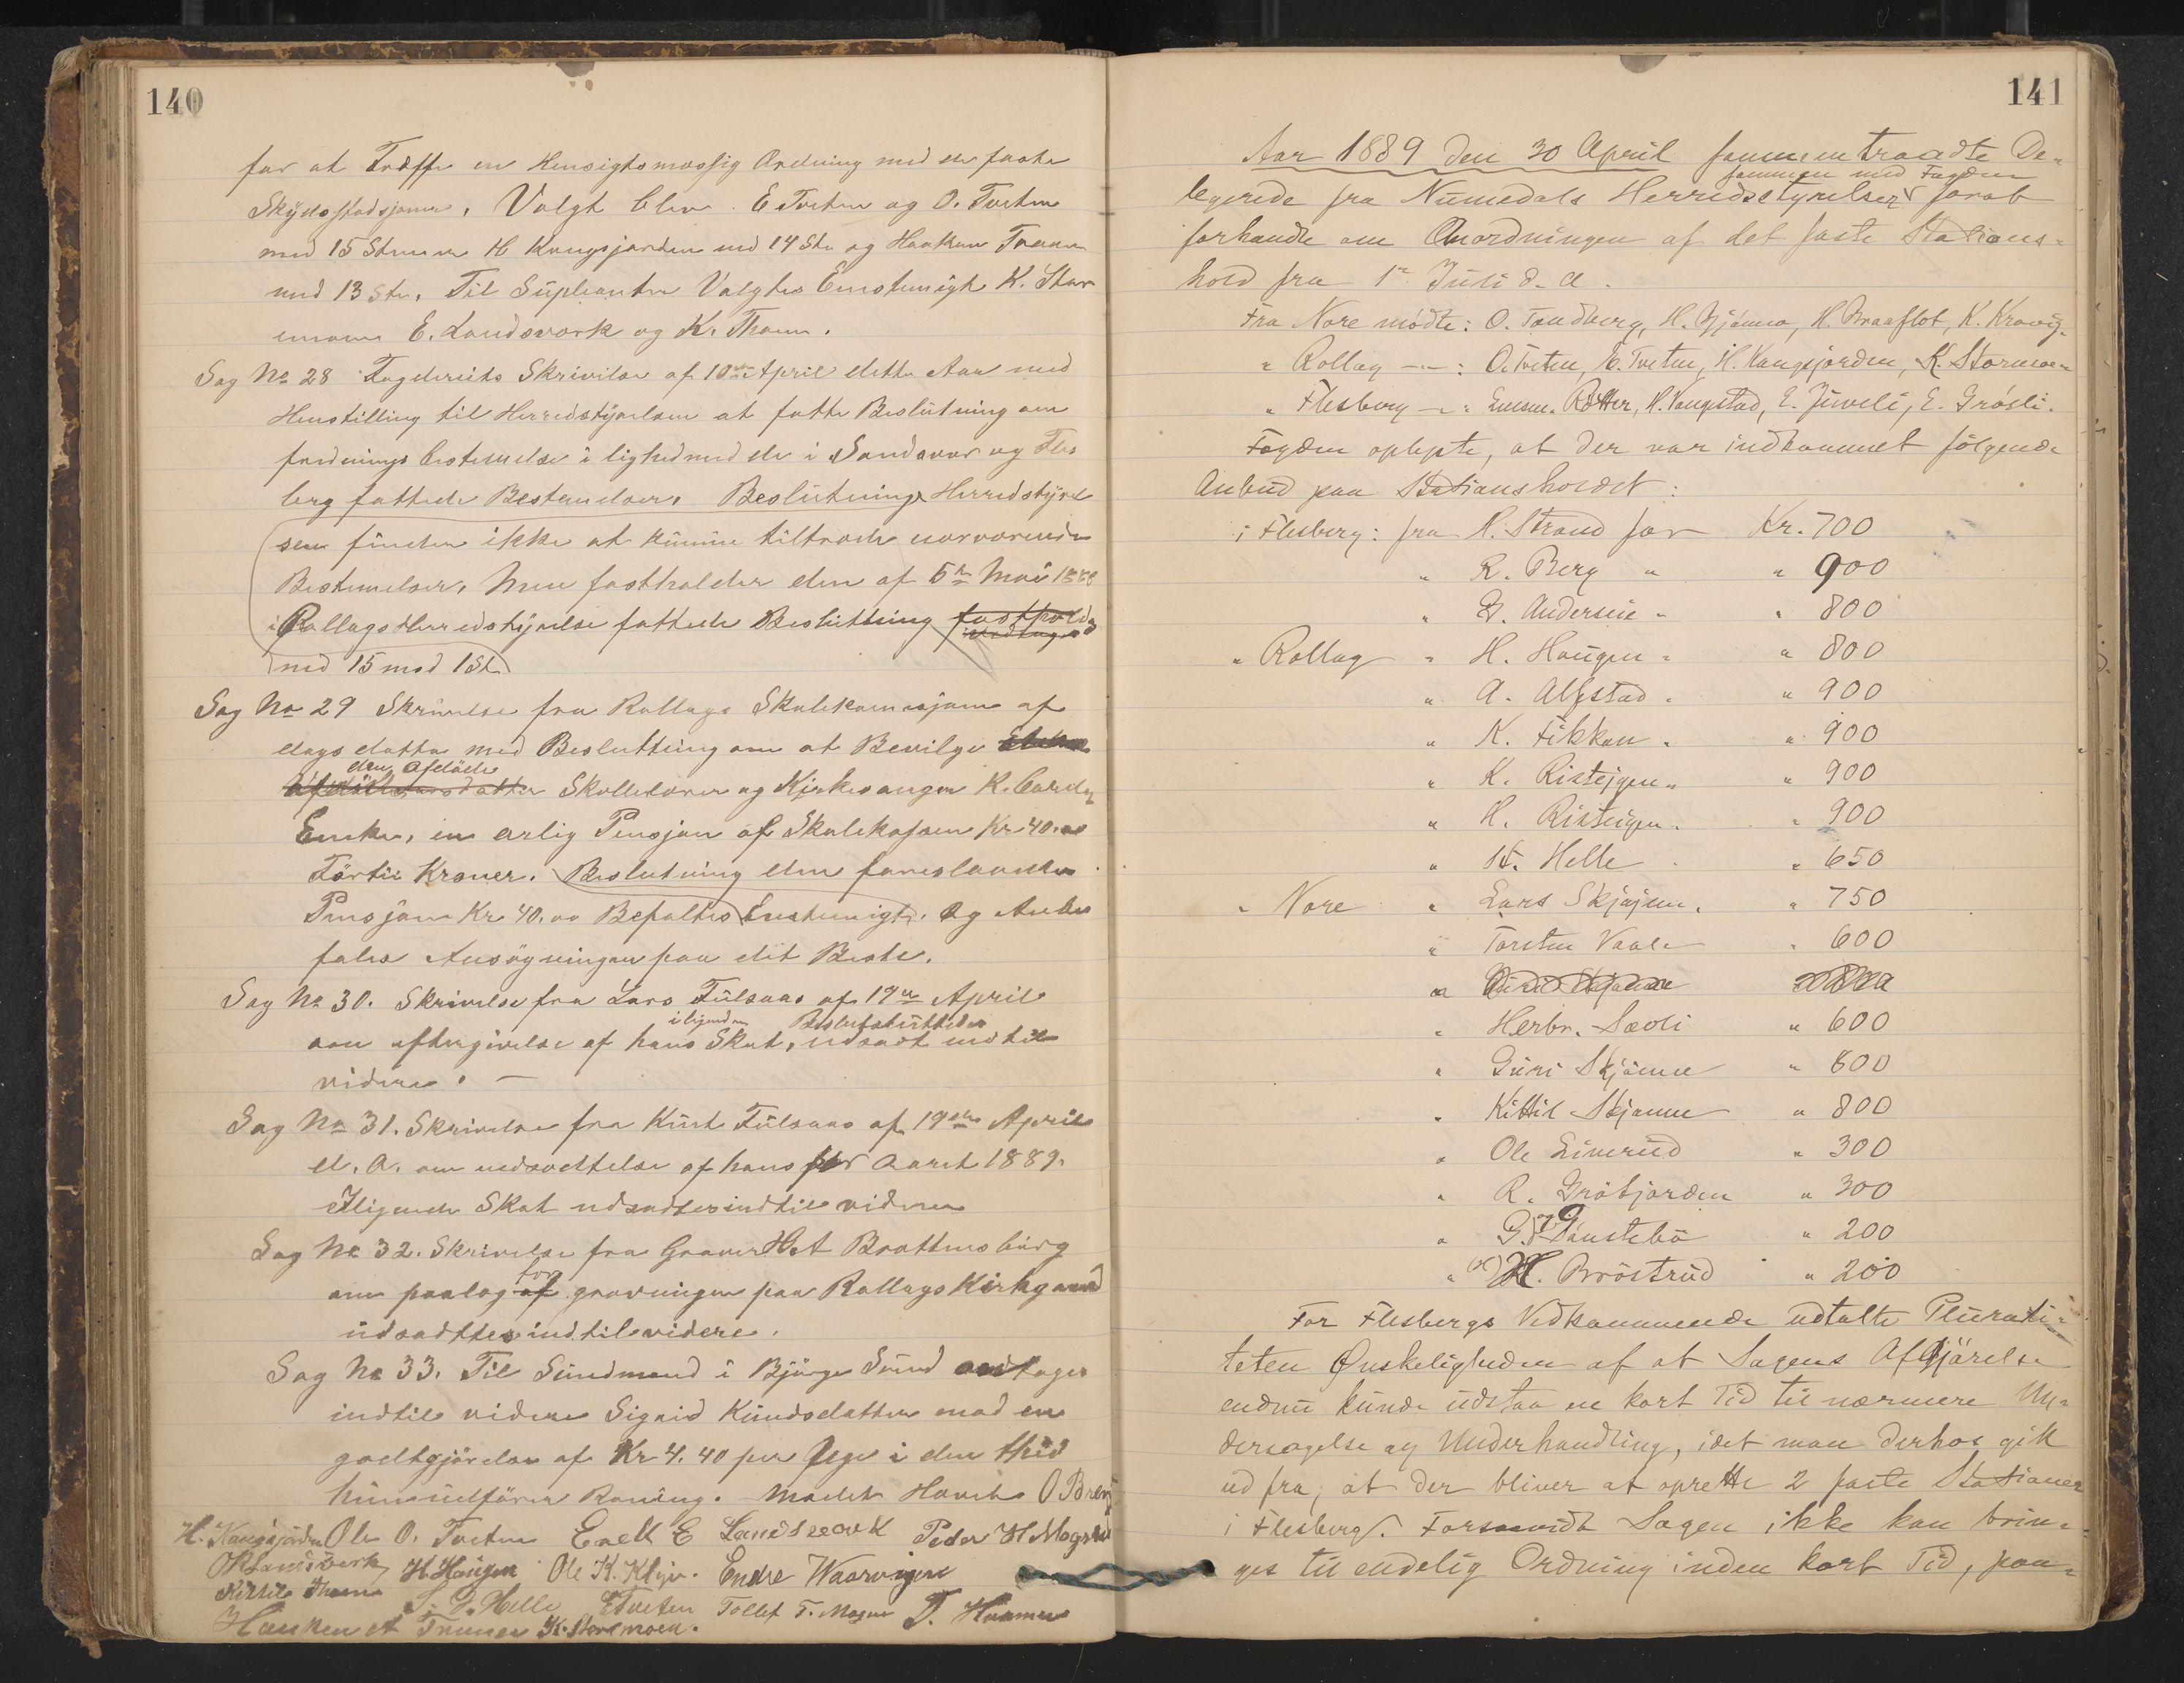 140
for at Træffe en Hensigtsmæssig Ordning med de faste
Skydsstadsjoner. Valgt blev E Tveten og O. Tveten
med 15 Stemmer H Kongsjorden med 14 Ste og Haakon Traaen
med 13 Ste. Til Supleanter Valgtes Enstemigt K. Stor
emoen E. Landsværk og Kr. Thoen.
Sag No 28 Fogderiets Skrivelse af 10de April dette Aar med
Henstilling til Herredstyrelsen at fatte Beslutning om
frednings bestemelse i lighed med de i Sandsvær og Fles
berg fattede Bestemelser. Beslutning Herredstyrel
sen finder ikke at kunne tiltræde nærværende
Bestemelser, Men fastholder den af 5te Mai 1888
i Rollags Herredstyrelse fattede Beslutning fastholdes
med 15 mod 1 St.
Sag No 29 Skrivelse fra Rollags Skolekomisjon af
dags datto med Besluttning om at Bevilge
den Afdöde
Skollelærer og Kjrkesanger K.
Enke, en arlig Pensjon af Skolekassen Kr 40.00
Förti Kroner. Beslutning den foreslaaede
Pensjon Kr 40.00 Befaltes Enstemigt. Og Anbe
fales Ansögningen paa det Beste.
Sag No 30. Skrivelse fra Lars Fulsaas af 19de April
iligende Beslutet
om eftergivelse af hans Skat, udsadt indtil
videre. —
Sag No 31. Skrivelse fra Knut Fulsaas af 19de April
d. A. om nedsættelse af hans for Aaret 1889.
Iligende Skat udsadtes indtil videre
Sag No 32. Skrivelse fra Graver Brattensborg
for
om paalag af gravningen paa Rollags Kirkgaard
udsadttes indtil videre.
Sag No 33. Til Sundmand i Bjørge Sund andtages
indtil videre Sigrid Knudsdatter mod en
godtgjörelse af Kr 4.40 per Uge i den tid
hun udförer Roning. Mødet Hævet O Bren
H. Kongsjorden Ole O. Tveten Enelt E Landsværk Peder H Mogstad
O K Landsverk H. Haugen Ole K. Endre Waarvigen
Kittil Thoen S. Helle E Tveten Tollef T. Mogen T. Hvammen
Haaken A Traaen K. Storemoen.
141
Aar 1889 den 30 April sammentraadte De-
sammen med Fogden
legerede fra Numedals Herredsstyrelser forat
forhandle om Anordningen af det faste Stations-
hold fra 1st Juli d. A.
Fra Nore mødte: O. Tandberg, H. Skjönne, H. Braaflot, K. Kravig.
" Rollag —"—: O. Tveten, E. Tveten, H. Kongsjorden, K. Stormoen
" Flesberg —"— Rotter, H. Vangestad, E. Juveli, E. Grösli.
Fogden oplyste, at der var indkommet fölgende
Anbud paa Stationsholdet:
i Flesberg: fra H. Strand for Kr. 700
" R. Berg " " 900
" G. Andersen " " 800
" Rollag " H. Haugen " " 800
" A. Alfstad " " 900
" K. Fikkan " " 900
" K. Risteigen " " 900
" H. Risteigen " " 900
" St. Helle " 650
" Nore " Lars Skjöjen " " 750
" Torsten Vaale " 600
" Herbr. Sævli " 600
" Guri Skjönne " 600
" Kittil Skjönne " 800
" Ole Liverud " 300
" R. Gröbjorden " 300
" G. Tönstebö " 200
" H. Bröstrud " 200
For Flesbergs Vedkommende udtalte Plurali-
teten Ønskeligheden af at Sagens Afgjörelse
endnu kunde udstaa en kort Tid til nærmere Un-
dersøgelse og Underhandling, idet man derhos gik
ud fra, at der bliver at oprette 2 faste Stationer
i Flesberg. Forsaavidt Sagen ikke kan brin-
ges til endelig Ordning inden kort Tid, paa-